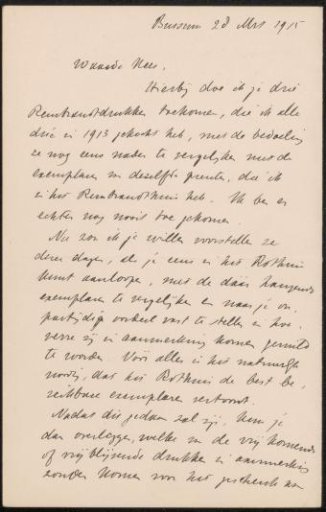 Bussum 28 Mrt 1915
Waarde Nees.
Hierbij doe ik je drie
Rembrandtdrukken toekomen, die ik alle
drie in 1913 gekocht heb, met de bedoeling
ze nog eens nader te vergelijken met de
exemplaren van dezelfde prenten, die ik
in het Rembrandthuis heb. Ik ben er
echter nog nooit toe gekomen.
Nu zou ik je willen voorstellen ze
dezer dagen, als je eens in het Rothuis
kunt aanloopen, met de daar hangende
exemplaren te vergelijken en naar je on-
partijdig oordeel vast te stellen in hoe-
verre zij in aanmerking komen geruild
te worden. Voor alles is het natuurlijk
noodig, dat het Rothuis de best be-
reikbare exemplaren vertoont.
Nadat dit gedaan zal zijn, kun je
dan overleggen, welke van de vrij komende
of vrij blijvende drukken in aanmerking
zouden komen voor het geschenk aan